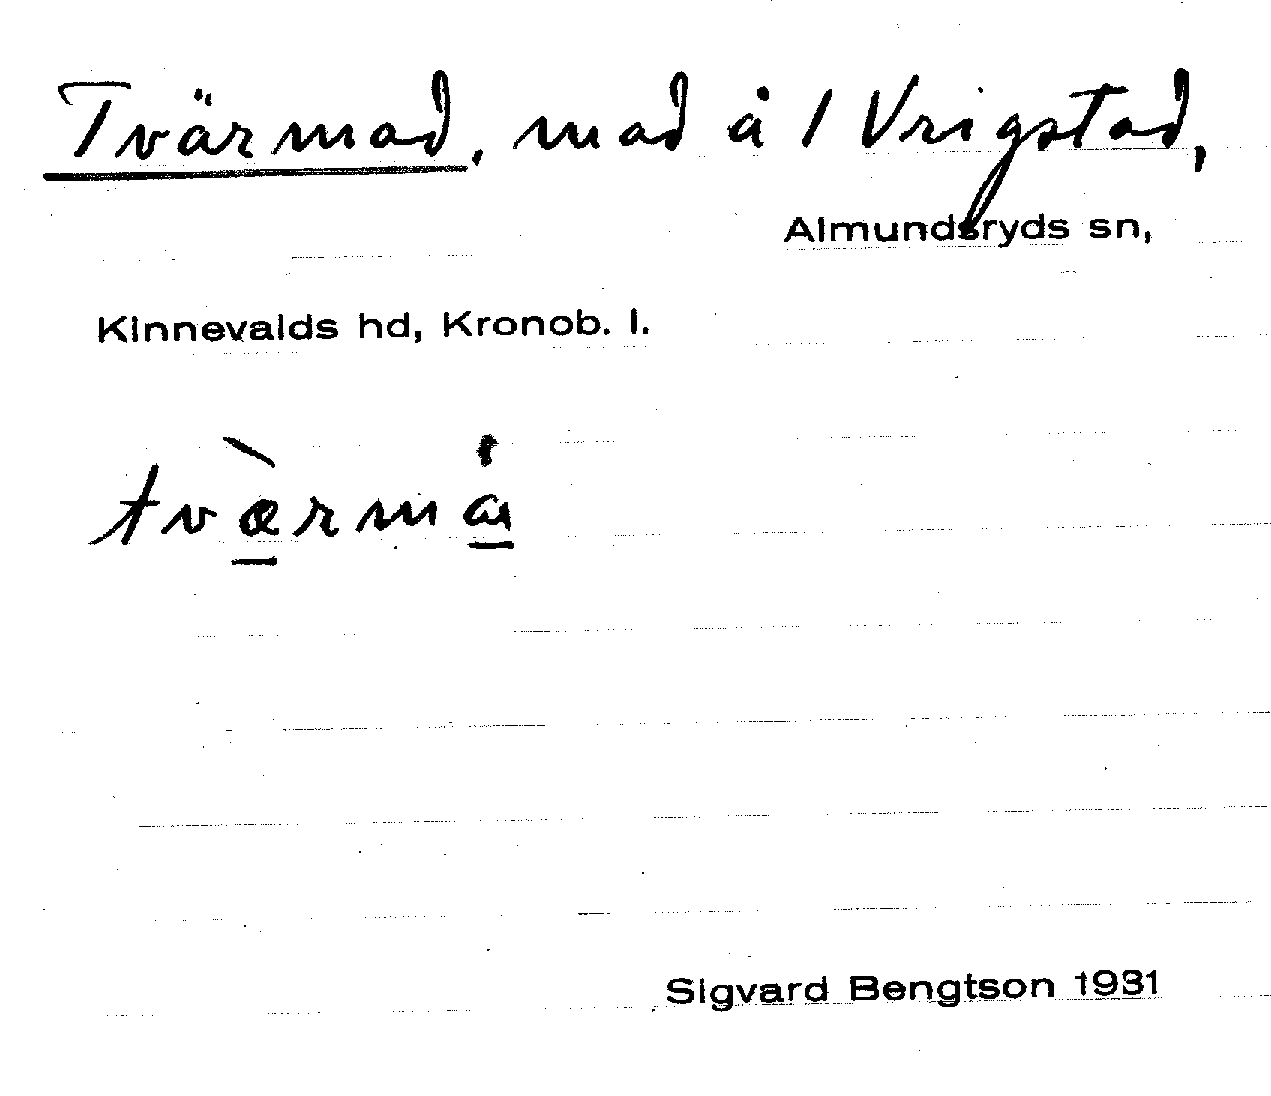 Tvärmad, mad å 1 Vrigstad,
Almundsryds sn,
Kinnevalds hd, Kronob. l.
tvæ̀rmå
Sigvard Bengtson 1931